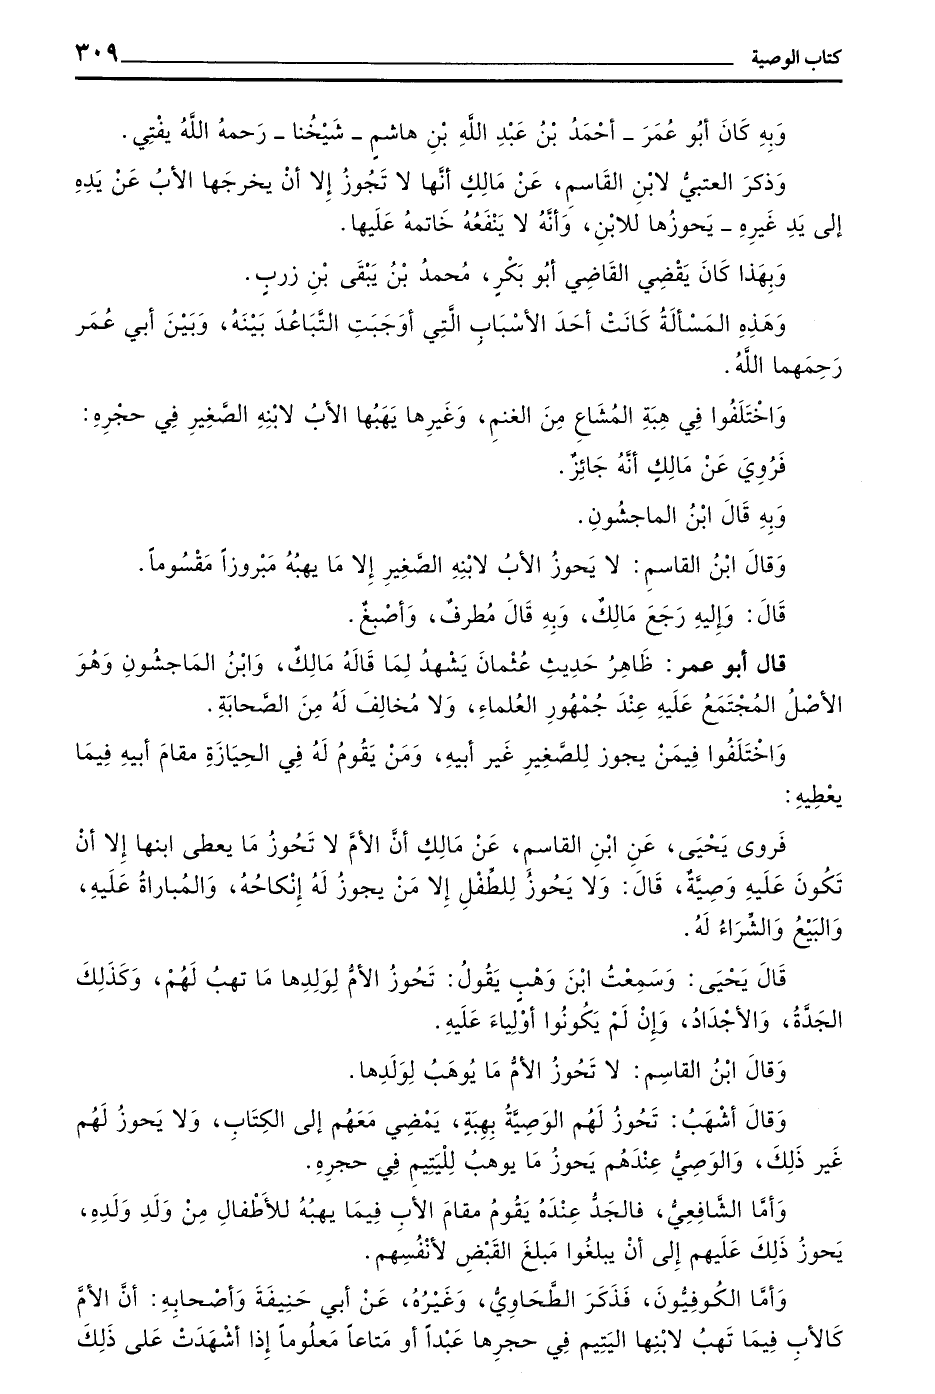 كتاب الوصية ٣٠٩
وَبِهِ كَانَ أبُو عُمَرَ ـ أحْمَدُ بْنُ عَبْدِ اللَّهِ بْنِ هاشمٍ ـ شَيْخُنا ـ رَحمهُ اللَّهُ يفْتِي.
وَذكرَ العتبيُّ لابْنِ القَاسمِ، عَنْ مَالِكٍ أنَّها لا تَجُوزُ إلا أنْ يخرجَها الأبُ عَنْ يَدِهِ
إلى يَدِ غَيرِهِ ـ يَحوزُها للابْنِ، وَأنَّهُ لا يَنْفَعُهُ خَاتمهُ عَلَيها.
وَبِهَذا كَانَ يَقْضِي القَاضِي أبُو بَكْرٍ، مُحمدُ بْنُ يَبْقَى بْنِ زربٍ.
وَهَذِهِ المَسْألَةُ كَانَتْ أحَدَ الأسْبَابِ الَّتِي أوَجَبَتِ التَّبَاعُدَ بَيْنَهُ، وَبَيْنَ أبي عُمَر
رَحِمَهما اللَّهُ.
وَاخْتَلَفُوا فِي هِبَةِ المُشَاعِ مِنَ الغنمِ، وَغَيرِها يَهَبُها الأبُ لابْنِهِ الصَّغيرِ فِي حجْرِهِ:
فَرُوِيَ عَنْ مَالِكٍ أنَّهُ جَائِزٌ.
وَبِهِ قَالَ ابْنُ الماجشُونِ.
وَقالَ ابْنُ القاسمِ: لا يَحوزُ الأبُ لابْنِهِ الصَّغيرِ إلا مَا يهبُهُ مَبْروزاً مَقْسُوماً.
قَالَ: وَإليهِ رَجَعَ مَالِكٌ، وَبِهِ قَالَ مُطرفٌ، وَأصْبغٌ.
قال أبو عمر: ظَاهِرُ حَدِيثِ عُثمانَ يَشْهدُ لِمَا قَالَهُ مَالِكٌ، وَابْنُ المَاجشُونِ وَهُوَ
الأصْلُ المُجْتَمَعُ عَلَيهِ عِنْدَ جُمْهُورِ العُلماءِ، وَلا مُخالِفَ لَهُ مِنَ الصَّحابَةِ.
وَاخْتَلَفُوا فِيمَنْ يجوز لِلصَّغيرِ غَير أبيهِ، وَمَنْ يَقُومُ لَهُ فِي الحِيَازَةِ مقامَ أبيهِ فِيمَا
يعْطِيهِ:
فَروى يَحْيَى، عَنِ ابْنِ القاسمِ، عَنْ مَالِكٍ أنَّ الأمَّ لا تَحُوزُ مَا يعطى ابنها إلا أنْ
تَكُونَ عَلَيهِ وَصِيَّةٌ، قَالَ: وَلا يَحُوزُ لِلطِّفْلِ إلا مَنْ يجوزُ لَهُ إنْكاحُهُ، وَالمُباراةُ عَلَيهِ،
وَالبَيْعُ وَالشِّرَاءُ لَهُ.
قَالَ يَحْيَى: وَسَمِعْتُ ابْنَ وَهْبٍ يَقُولُ: تَحُوزُ الأمُّ لِوَلِدِها مَا تهبُ لَهُمْ، وَكَذَلِكَ
الجَدَّةُ، وَالأجْدَادُ، وَإنْ لَمْ يَكُونُوا أوْلِياءَ عَلَيهِ.
وَقالَ ابْنُ القاسِمِ: لا تَحُوزُ الأمُّ مَا يُوهَبُ لِوَلَدِها.
وَقَالَ أشْهَبُ: تَحُوزُ لَهُم الوَصِيَّةُ بِهِبَةٍ، يَمْضِي مَعَهُم إلى الكِتَابِ، وَلا يَحوزُ لَهُم
غَير ذَلِكَ، وَالوَصِيُّ عِنْدَهُم يَحوزُ مَا يوهبُ لِلْيَتِيمِ فِي حجرِهِ.
وَأمَّا الشَّافِعِيُّ، فالجَدُّ عِنْدَهُ يَقُومُ مقامَ الأبِ فِيمَا يهبُهُ للأَطْفالِ مِنْ وَلَدِ وَلَدِهِ،
يَحوزُ ذَلِكَ عَلَيهِم إلى أنْ يبلغُوا مَبلغَ القَبْضِ لأنْفُسِهم.
وَأمَّا الكُوفِيُّونَ، فَذَكَرَ الطَّحَاوِيُّ، وَغَيْرُهُ، عَنْ أبي حَنِيفَةَ وَأصْحابِهِ: أنَّ الأمَّ
كَالأبِ فِيمَا تَهبُ لابْنِها اليَتِيمِ فِي حجرِها عَبْداً أو مَتاعاً مَعلُوماً إذا أشْهَدَتْ عَلى ذَلِكَ